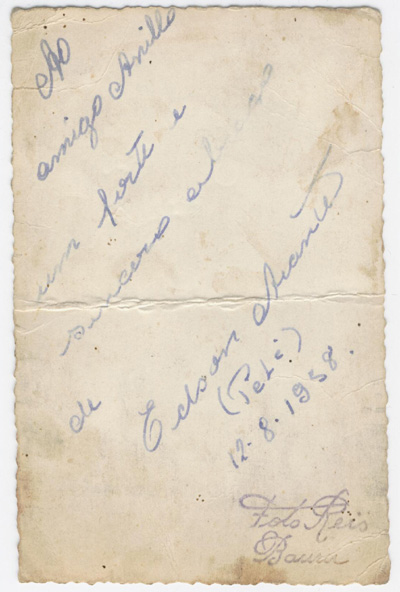 Ao
amigo Anillo
um forte e
sincero abraço
de Edson Arantes
(Pelé)
12-8-1958.
Foto Reis
Bauru